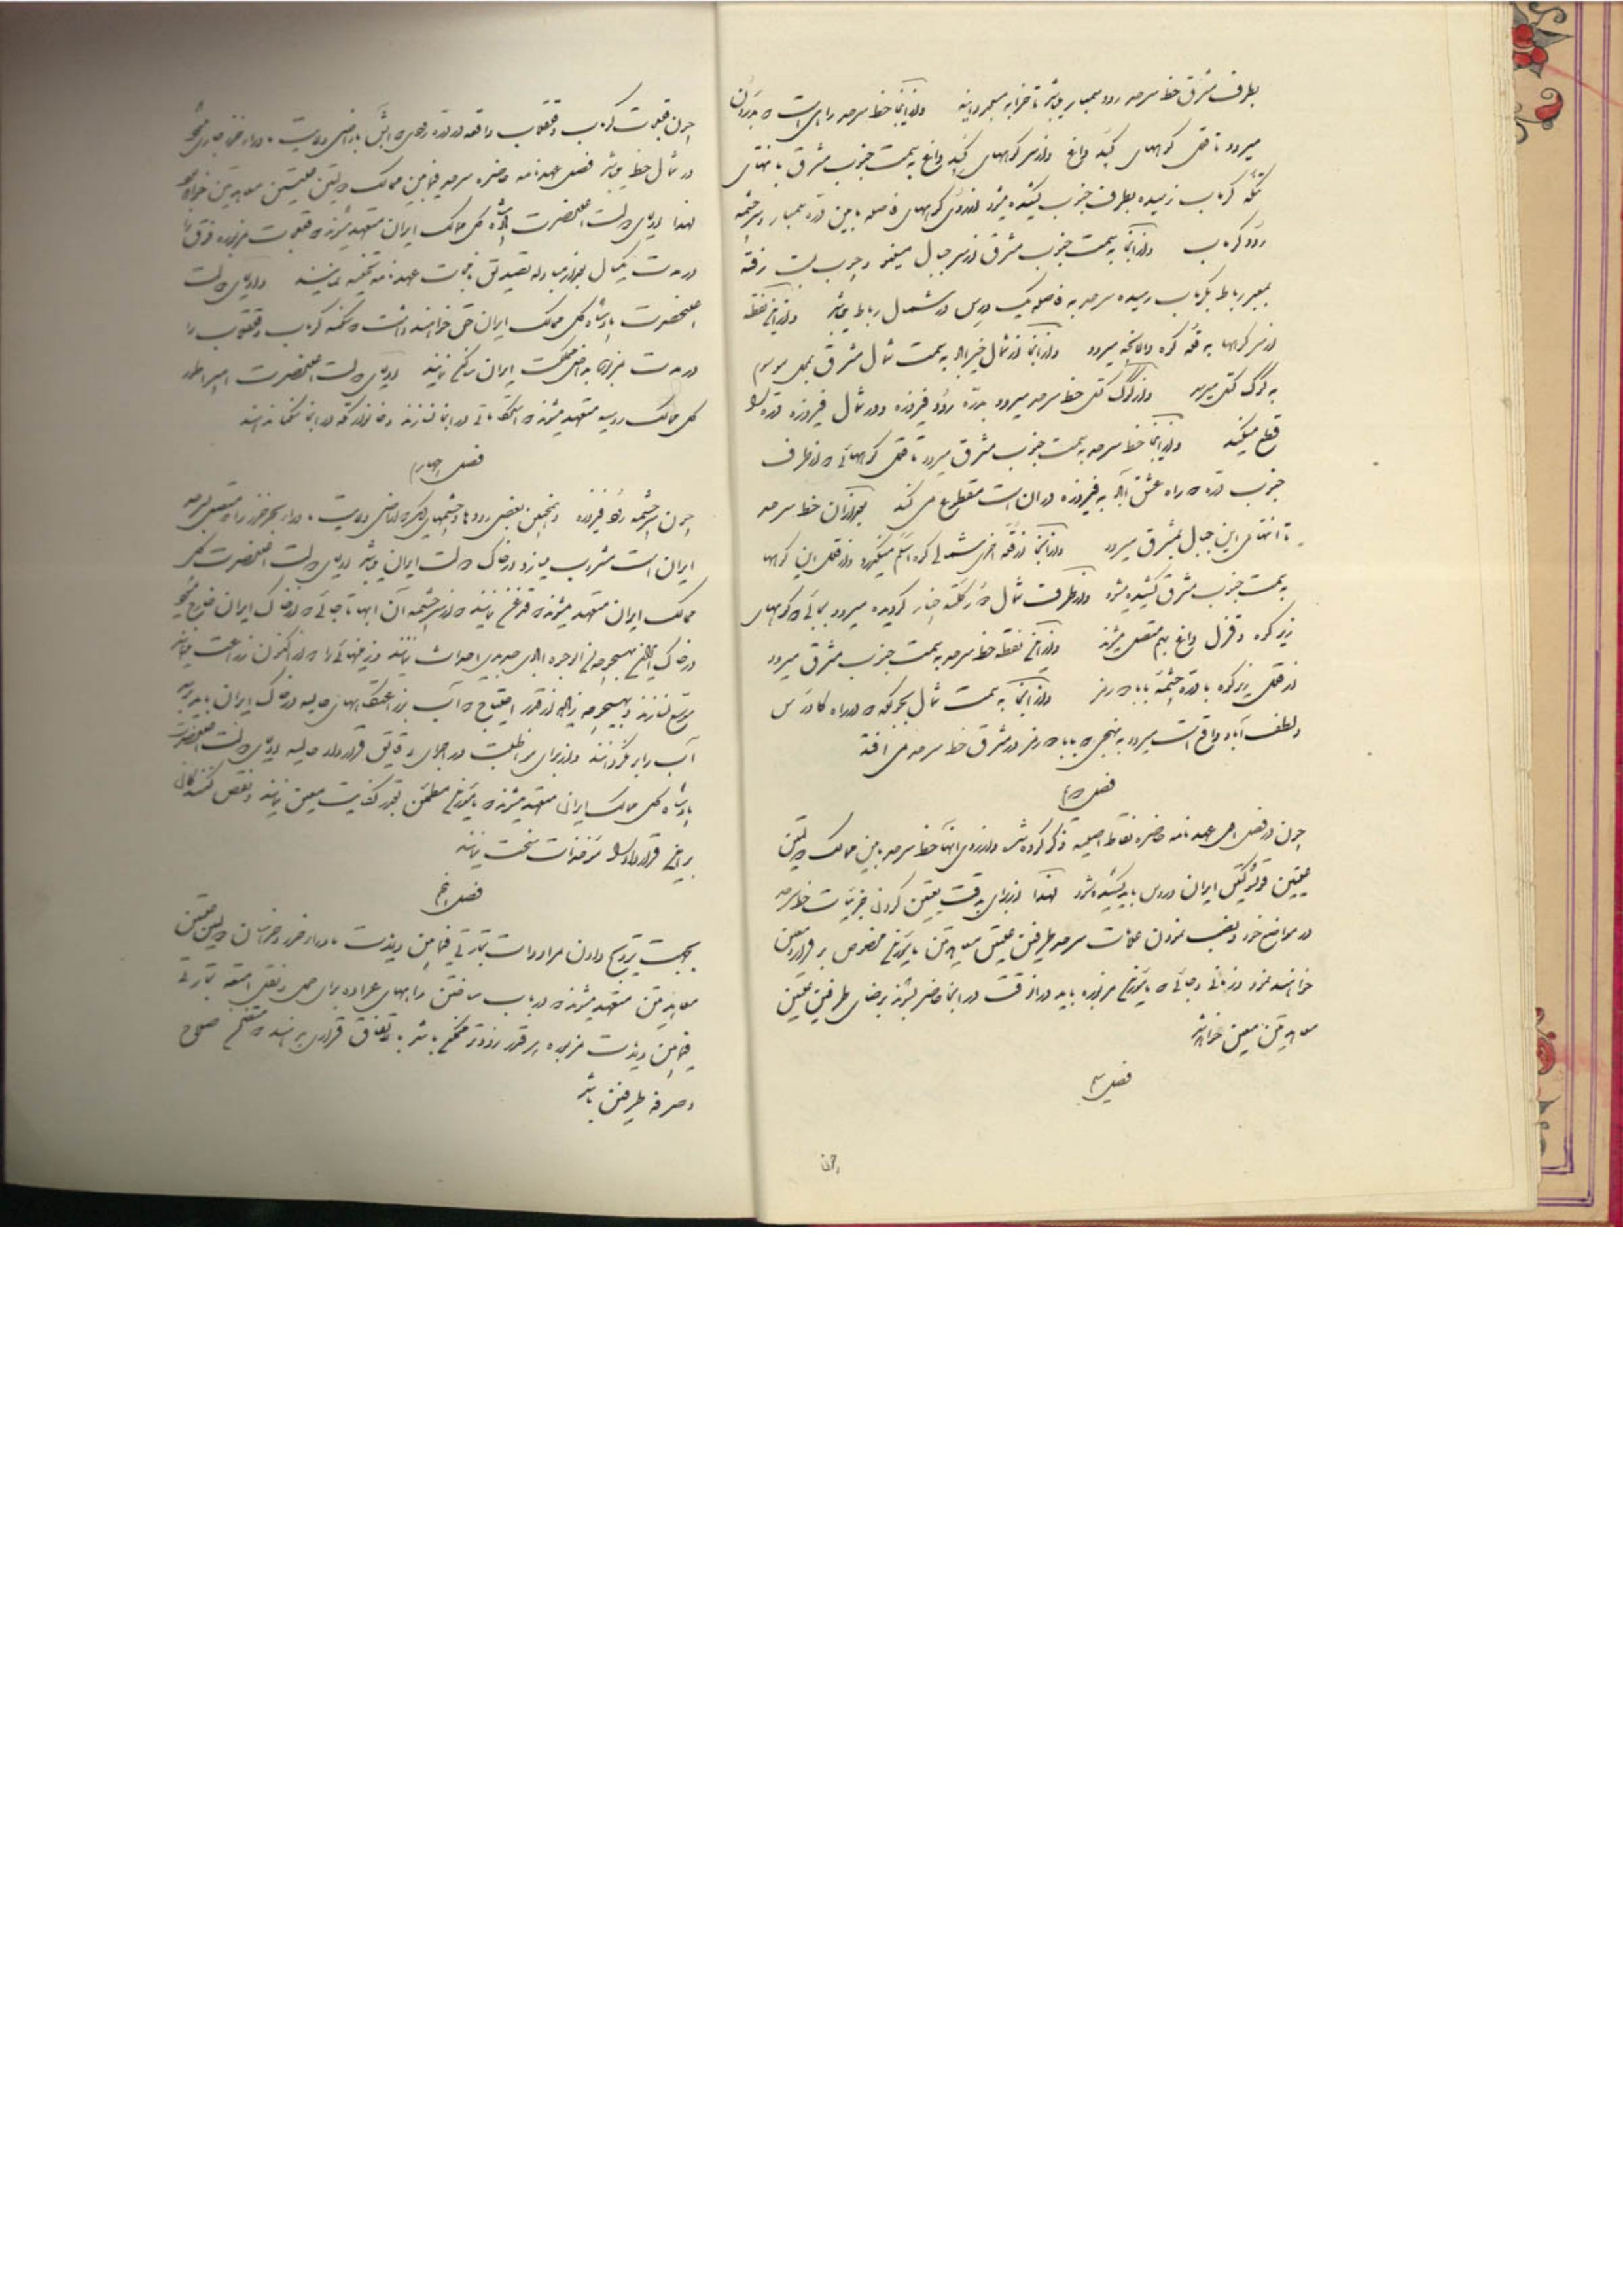 بطرف مشرق خط سرحد رود سمبار میباشد تا خرابه مسجد داینه و از اینجا خط سرحد راهی است که بدرون
میرود تا قلل کوههای کپه داغ و از سر کوههای کپه داغ به سمت جنوب مشرق بانتهای
تنگه کرماب نرسیده بطرف جنوب کشیده میشود از روی کوههای فاصله مابین دره سمبار و سرچشمه
رود کرماب و از آنجا به سمت جنوب مشرق از سر جبال میغو و چوب بست رفته
بمعبر رباط بکرماب رسیده سرحد به فاصله یک ورس در شمال رباط میباشد و از این نقطه
از سر کوهها به قله کوه دالانچه میرود و از آنجا از شمال خیرآباد به سمت شمال مشرق بمحل موسوم
به گوگ کتل میرسد و از گوگ کتل خط سرحد میرود بدره رود فیروزه و در شمال فیروزه دره را
قطع میکند و از اینجا خط سرحد به سمت جنوب مشرق میرود تا قلل کوههائی که از طرف
جنوب دره که راه عشق آباد به فیروزه در آن است مقطوع می کند بعد از آن خط سرحد
تا انتهای این جبال بمشرق میرود و از آنجا از قله اخری شمالی کوه اسلم میگذرد و از قلل این کوهها
به سمت جنوب مشرق کشیده میشود و از طرف شمال کلته چنار گردیده میرود بجائی که کوههای
زیر کوه و قزل داغ بهم متصل میشوند و از این نقطه خط سرحد به سمت جنوب مشرق میرود
از قلل زیر کوه تا دره چشمه بابا دورمز و از آنجا به سمت شمال بجرگه که در راه گاورس
و لطف آباد واقع است میرود به نهجی که بابا دورمز در مشرق خط سرحد می افتد
فصل دویم
چون در فصل اول عهدنامه حاضره نقاط اصلیه ذکر کرده شد و از روی آنها خط سرحد مابین ممالک دولتین
علیتین ایران و روس باید کشیده شود لهذا از برای بدقت یقین کردن جزئیات خط سرحد
در مواضع خود و نصب نمودن علامات سرحد طرفین علیتین معاهدتین مأمورین مخصوص برقرار و معین
خواهند نمود و زمانی و جائی که مأمورین مزبوره باید در آن وقت در آنجا حاضر بشوند برضای طرفین علیتین
معاهدتین معین خواهد شد
فصل سیم
چون
چون قلعجات کرماب و قلقلاب واقعه در دره رودی که آبش باراضی ولایت ماوراء خزر جاری میشود
در شمال خط میباشد فصل عهدنامه حاضره سرحد فیمابین ممالک دولتین علیتین معاهدتین خواهد بود
لهذا اولیای دولت اعلیحضرت پادشاه کل ممالک ایران متعهد میشوند که قلعجات مزبوره فوق را
در مدت یکسال بعد از مبادله تصدیق نامجات عهدنامه تخلیه نمایند و اولیای دولت
اعلیحضرت پادشاه کل ممالک ایران حق خواهند داشت که سکنه کرماب و قلقلاب را
در مدت مزبوره به داخل مملکت ایران کوچ نمایند اولیای دولت اعلیحضرت امپراطور
کل ممالک روسیه متعهد میشوند که استحکاماتی در آنجا نسازند و خانوار ترکمه در آنجا ننشانند
فصل چهارم
چون سرچشمه رود فیروزه و همچنین بعضی رودها و چشمهای دیگر که اراضی ولایت ماوراء بحر خزر را متصل بسرحد
ایران است مشروب میسازد در خاک دولت ایران میباشد اولیای دولت اعلیحضرت کل
ممالک ایران متعهد میشوند که قدغن نمایند که از سرچشمه آن آبها تا جائی که از خاک ایران خارج میشود
در خاک ایران بهیچوجه من الوجوه آبادی جدید احداث نمایند و زمینهائی را که تا کنون زراعت مینمایند
توسیع نسازند و بهیچوجه زیاده از قدر احتیاج که آب زراعتهای حالیه در خاک ایران باید برسد
آب را برنگردانند و از برای مواظبت در اجرای دقایق قرارداد حالیه اولیای دولت اعلیحضرت
پادشاه کل ممالک ایران متعهد میشوند که مأمورین مطمئن بقدر کفایت معین نمایند و نقض کنندگان
برای این قرارداد را مؤاخذات سخت نمایند
فصل پنجم
بجهت ترویج دادن مراودات تجارتی فیمابین ولایت ماوراء خزر و خراسان دولتین علیتین
معاهدتین متعهد میشوند که در باب ساختن راههای عراده برای حمل و نقل امتعه تجارتی
فیمابین ولایت مزبوره هر قدر زودتر ممکن باشد باتفاق قراری بدهند که متضمن صلاح
و صرفه طرفین باشد